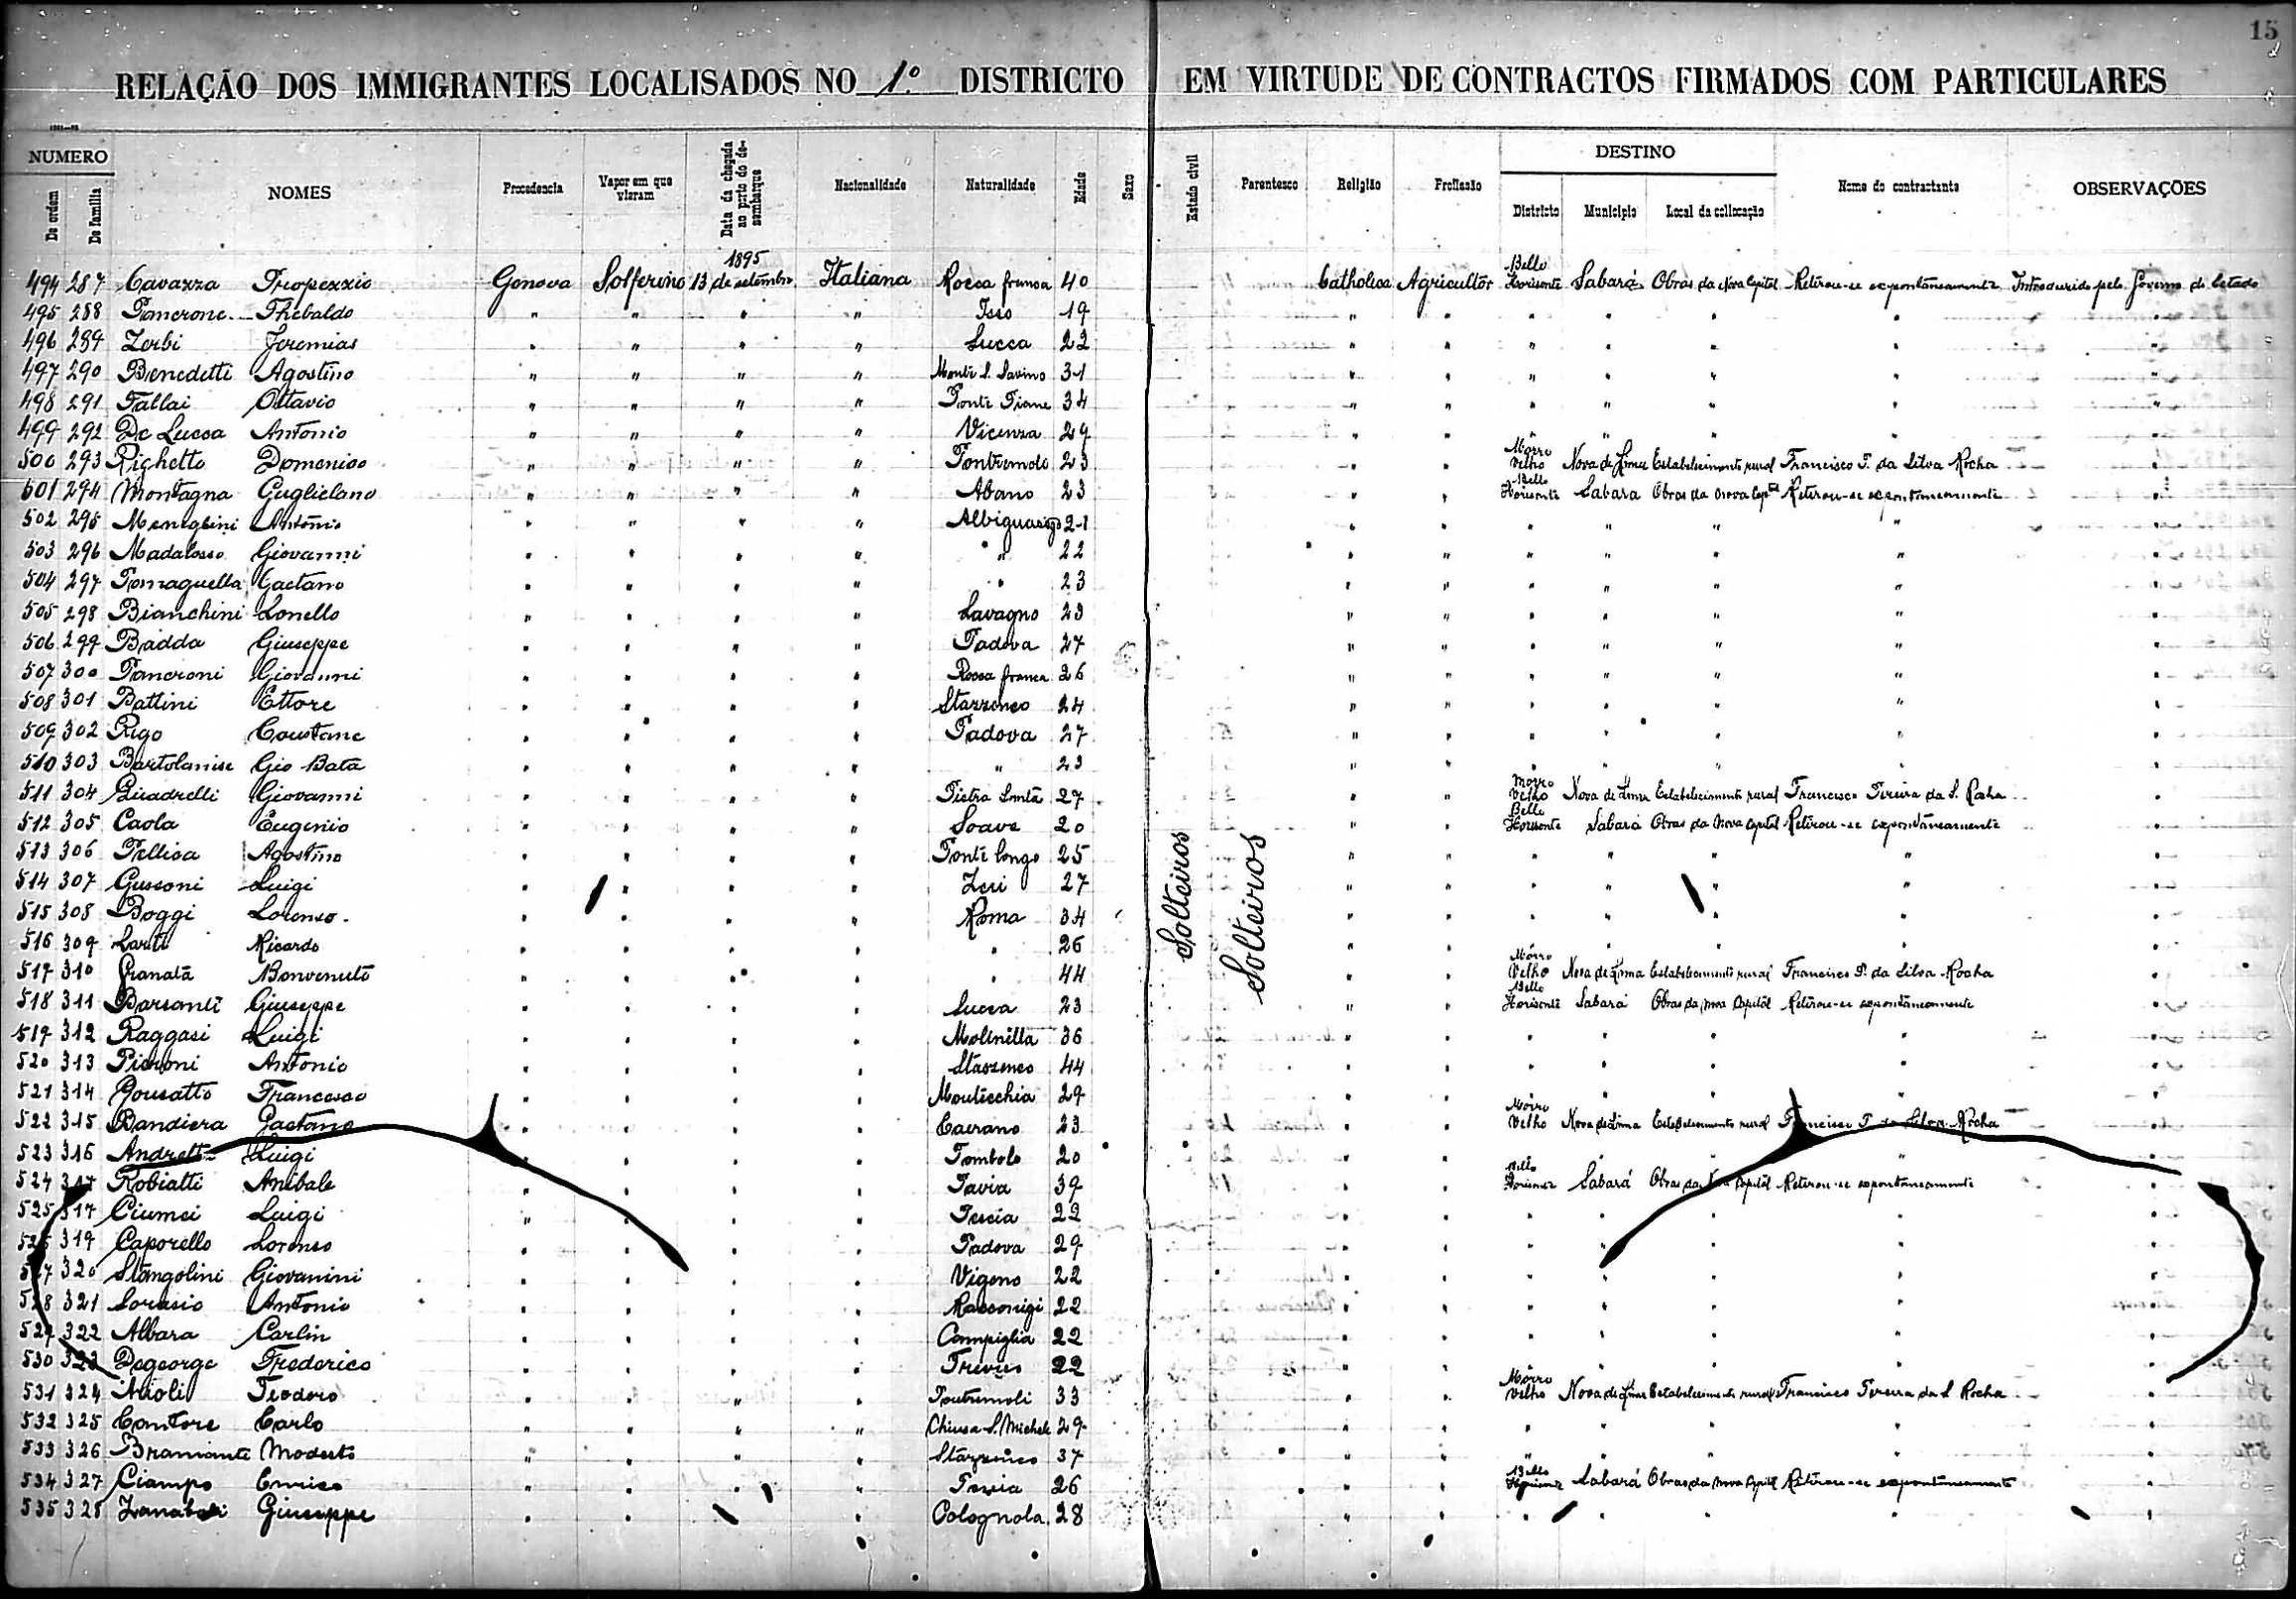 15
RELAÇÃO DOS IMMIGRANTES LOCALISADOS NO 1.º DISTRICTO EM VIRTUDE DE CONTRACTOS FIRMADOS COM PARTICULARES
NUMERO
De ordem De familia NOMES Procedencia Vapor em que vieram Data da chegada ao porto do desembarque Nacionalidade Naturalidade Edade Sexo Estado civil Parentesco Religião Profissão DESTINO Districto Municipio Local da collocação Nome do contractante OBSERVAÇÕES
494 287 Cavazza Genova Solferino 1895 13 de setembro Italiana Rocca franca 40 Catholica Agricultor Bello Horisonte Sabará Obras da Nova Capital Retirou-se espontaneamente Introdusido pelo Governo do Estado
495 288 Pancrone Thebaldo " " " " Isso 19 " " " " " " "
496 289 Zerbi Jeremias " " " " Lucca 22 " " " " " " "
497 290 Benedetti Agostino " " " " Monte S. Savino 31 " " " " " " "
498 291 Fallai Ottavio " " " " Ponte Piane 34 " " " " " " "
499 292 De Lucca Antonio " " " " Vicenza 29 " " " " " " "
500 293 Righetto Domenico " " " " Pontremolo 23 " " Morro Velho Nova de Lima Estabelecimento rural Francisco P. da Silva Rocha "
501 294 Montagna Guglielano " " " " Abano 23 " " Bello Horisonte Sabara Obras da Nova Capal Retirou-se espontaneamente "
502 295 Meneghini Antonio " " " " 21 " " " " " " "
503 296 Madalosso Giovanni " " " " " 22 " " " " " " "
504 297 Pomaguella Gaetano " " " " " 23 " " " " " " "
505 298 Bianchini Lonello " " " " Lavagno 23 " " " " " " "
506 299 Badda Giuseppe " " " " Padova 27 " " " " " " "
507 300 Pancroni Giovanni " " " " Rocca franca 26 " " " " " " "
508 301 Battini Ettore " " " " Starzeneo 24 " " " " " " "
509 302 Rigo Coustane " " " " Padova 27 " " " " " " "
510 303 Gio Bata " " " " " 23 " " " " " " "
511 304 Giovanni " " " " Pietra Santa 27 " " Morro Velho Nova de Lima Estabelecimento rural Francisco Pereira da S. Rocha "
512 305 Caola Eugenio " " " " Soave 20 " " Bello Horisonte Sabará Obras da Nova Capital Retirou-se espontaneamente "
513 306 Pellica Agostino " " " " Ponte longo 25 " " " " " " "
514 307 Gussoni Luigi " " " " Zeri 27 " " " " " " "
515 308 Boggi Lorenso " " " " Roma 34 " " " " " " "
516 309 Ricardo " " " " " 26 " " " " " " "
517 310 Granata Bonvenuto " " " " " 44 " " Morro Velho Nova de Lima Estabelecimento rural Francisco P. da Silva Rocha "
518 311 Barsanti Giuseppe " " " " Lucca 23 " " Bello Horisonte Sabará Obras da Nova Capital Retirou-se espontaneamente "
519 312 Raggasi Luigi " " " " Molinilla 36 " " " " " " "
520 313 Pieroni Antonio " " " " Starzeneo 44 " " " " " " "
521 314 Gousatto Francesco " " " " Montecchia 29 " " " " " " "
522 315 Bandiera Gaetano " " " " Caerano 23 " " Morro Velho Nova de Lima Estabelecimento rural Francisco P. da Silva Rocha "
523 316 Andretta Luigi " " " " Tombolo 20 " " " " " " "
524 317 Robiatti Anibale " " " " Pavia 39 " " Bello Horisonte Sabará Obras da Nova Capital Retirou-se espontaneamente "
525 317 Ciumei Luigi " " " " Pescia 22 " " " " " " "
526 319 Caporello Lorenso " " " " Padova 29 " " " " " " "
527 320 Stangolini Giovanini " " " " Vigono 22 " " " " " " "
528 321 Sorasio Antonio " " " " Racconigi 22 " " " " " " "
529 322 Albara Carlin " " " " Campiglia 22 " " " " " " "
530 323 Degeorge Frederico " " " " Treviso 22 " " " " " " "
531 324 Arioli Teodoro " " " " Pontremoli 33 " " Morro Velho Nova de Lima Estabelecimento rural Francisco Pereira da S Rocha "
532 325 Cantore Carlo " " " " Chiusa S. Michele 29 " " " " " " "
533 326 Bramante Modesto " " " " 37 " " " " " " "
534 327 Ciampo Enrico " " " " 26 " " Bello Horisonte Sabará Obras da Nova Capital Retirou-se espontaneamente "
535 328 Giuseppe " " " " Colognola 28 " " " " " " "
Solteiros
Solteiros